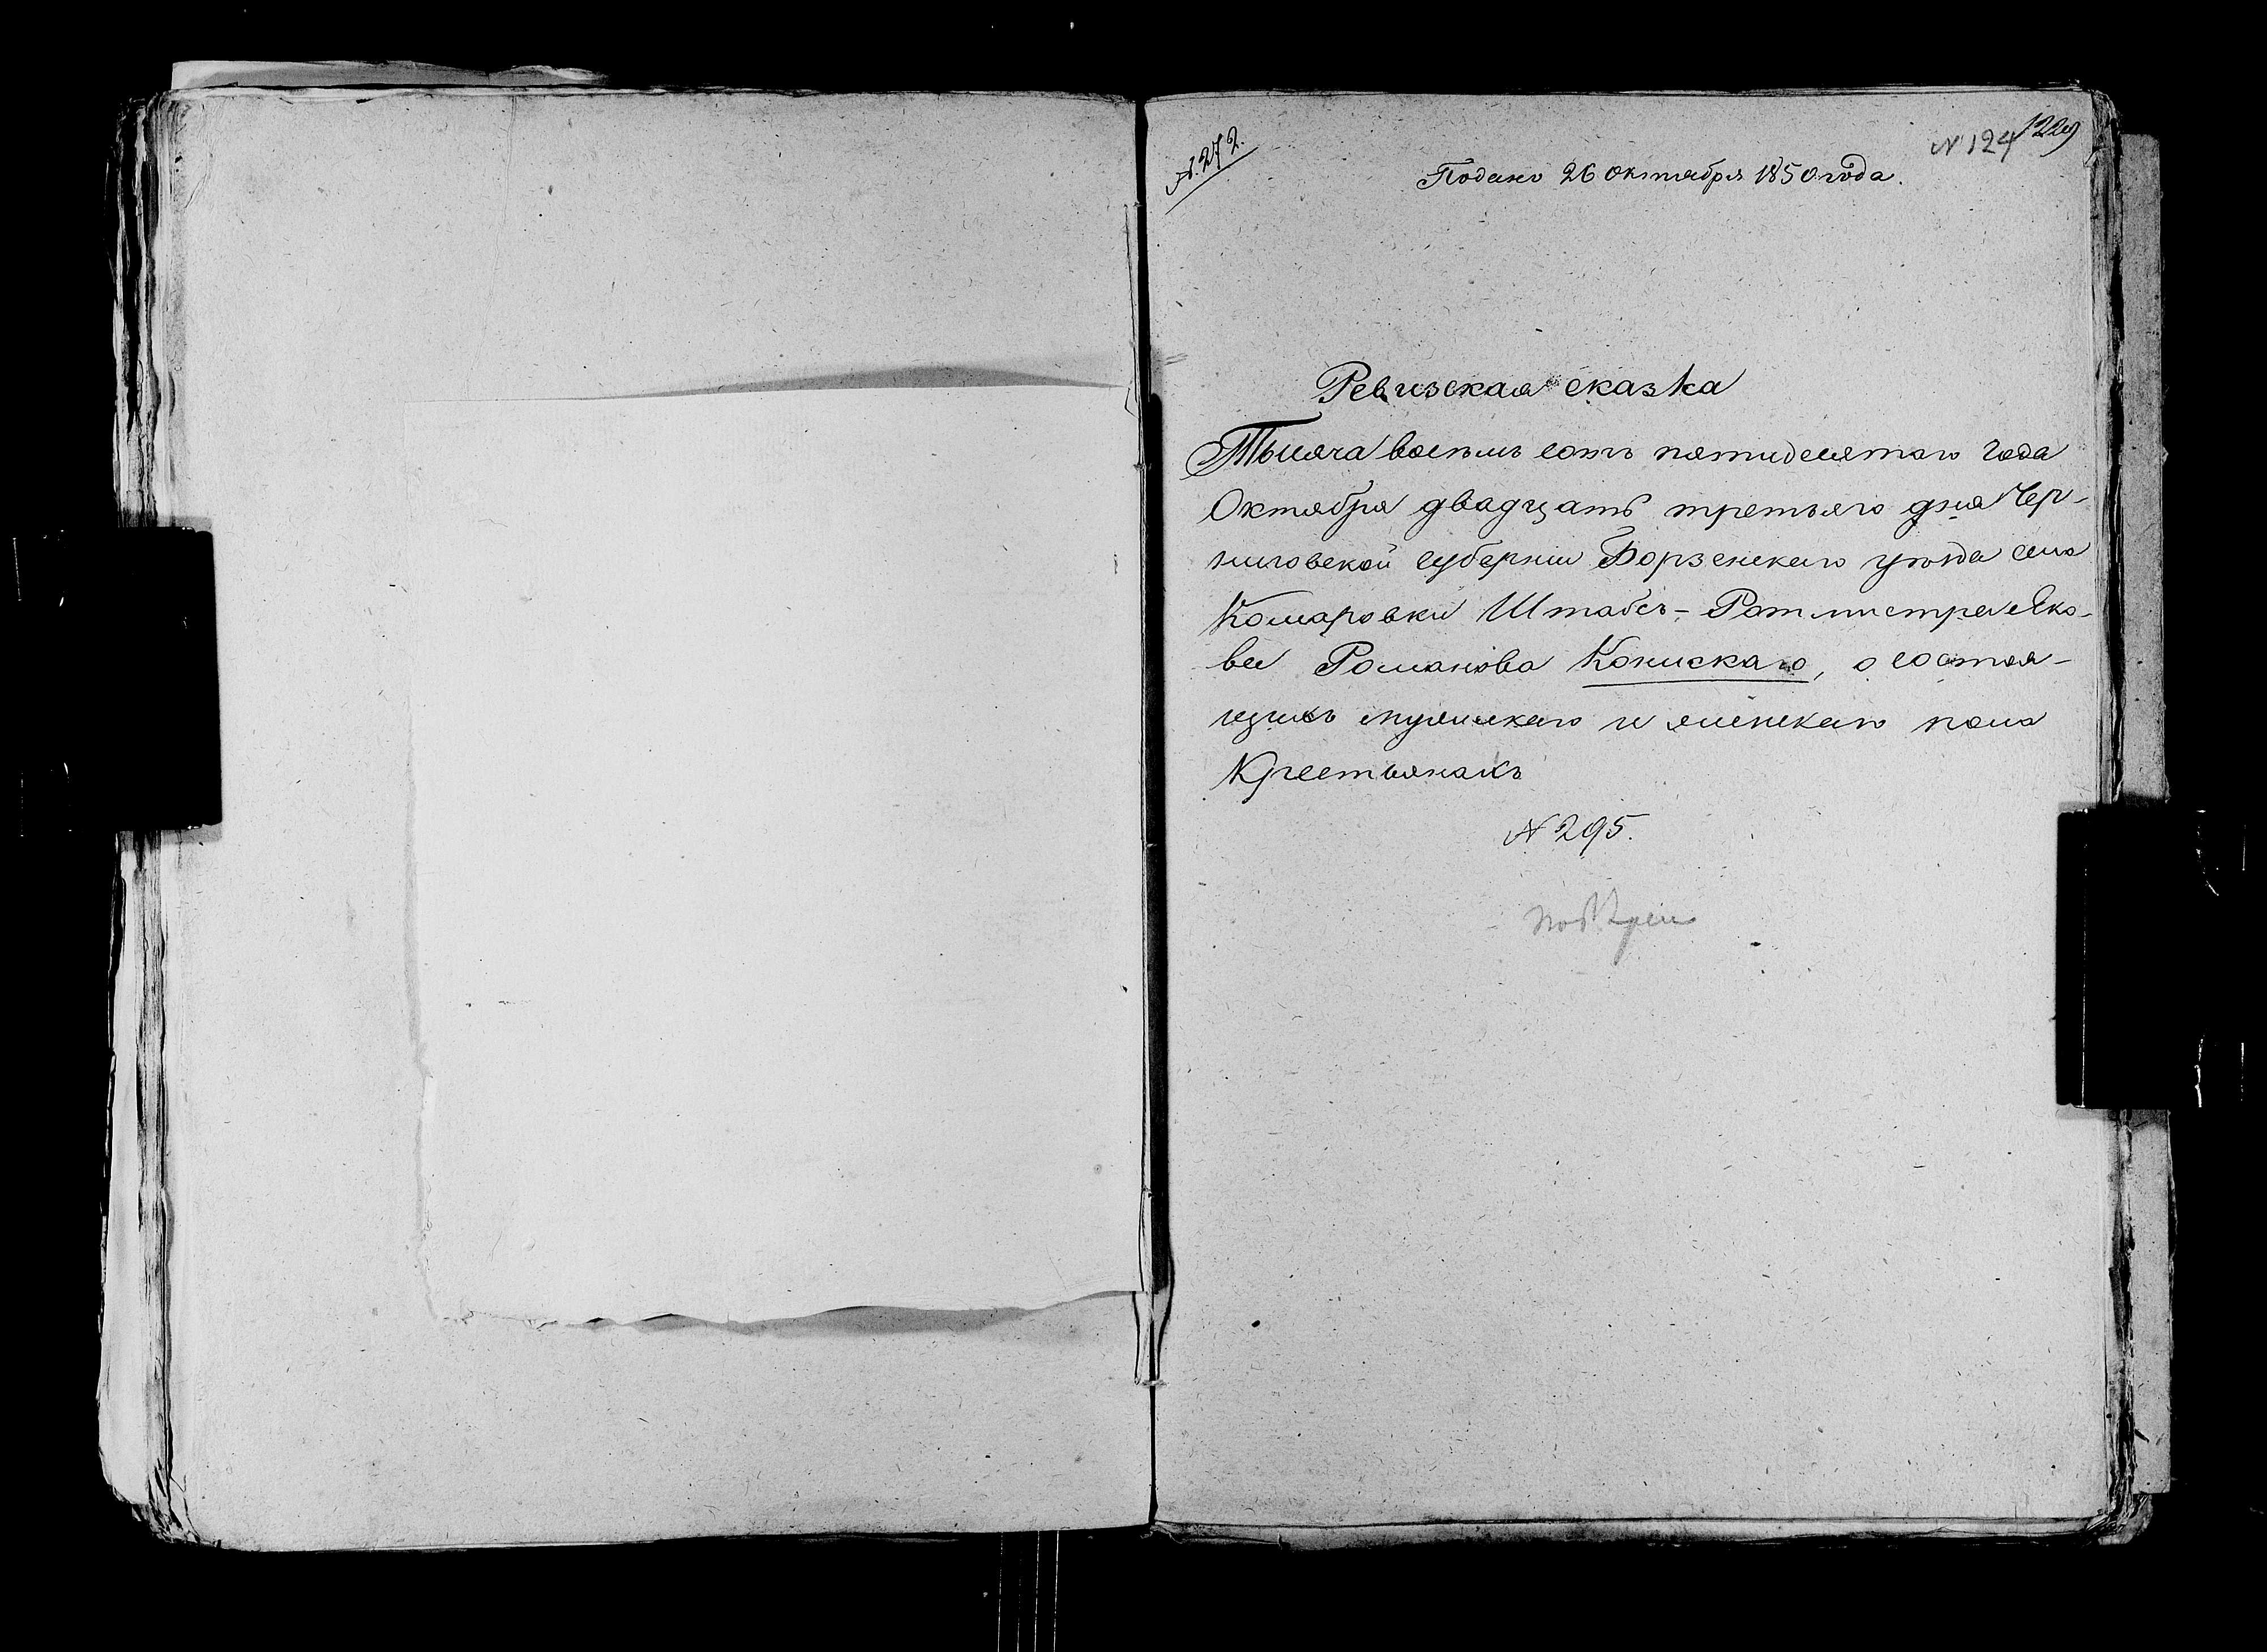 N. 272.
N 124 1229
Подано 26 Октября 1850 года.
Ревизская сказка
Тысяча восемь сотъ пятидесятого года
Октября двадцать третьяго дня Чер-
ниговской губерніи Борзенскаго уѣзда села
Комаровки Штабсъ-Ротмистра Яко-
ва Романова Конискаго, о состоя-
щихъ мужескаго и женскаго пола
Крестьянахъ
N 295.